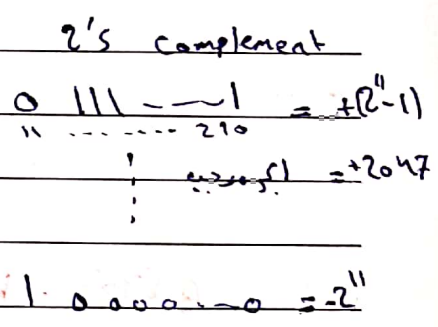 2's complement
0 111 - - - 1 = +(2^11 - 1)
11 ........ 210
= +2047
1 0000..-0 = -2^11